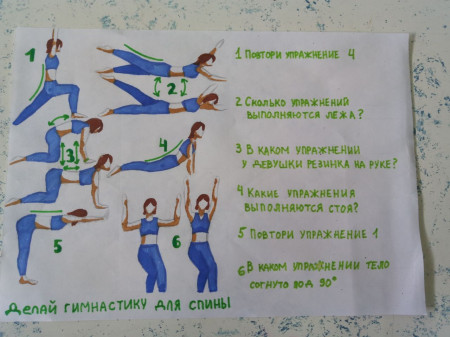 1
2
3
4
5
6
Делай гимнастику для спины
1 Повтори упражнение 4
2 Сколько упражнений
выполняются лёжа?
3 В каком упражнении
у девушки резинка на руке?
4 Какие упражнения
выполняются стоя?
5 Повтори упражнение 1
6 В каком упражнении тело
согнуто под 90°